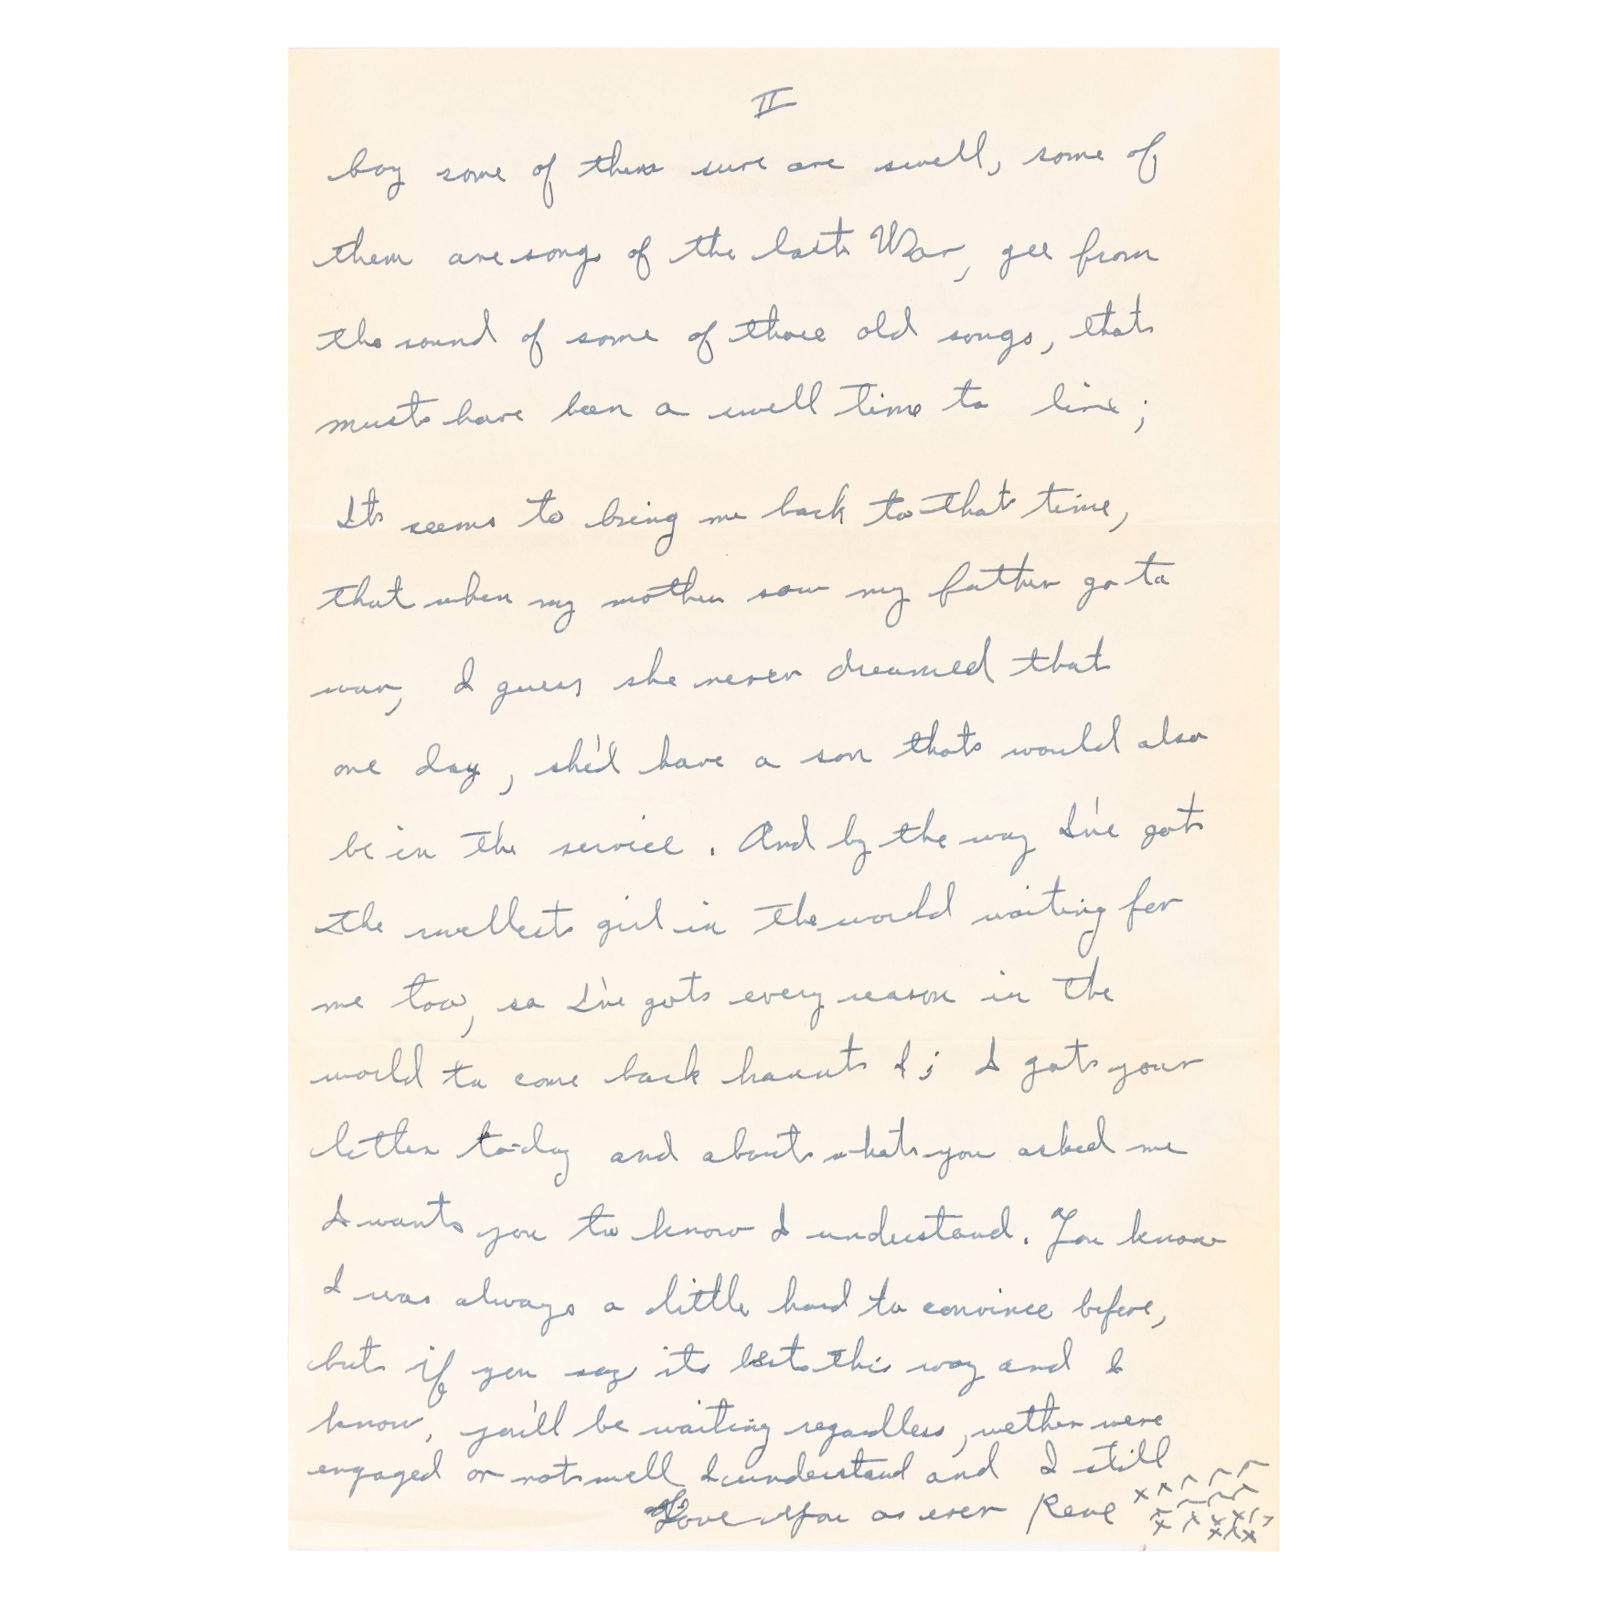 II
boy some of them sure are swell, some of
them are songs of the last War, gee from
the sound of some of those old songs, that
must have been a swell time to live;
It seems to bring me back to that time,
that when my mother saw my father go to
war, I guess she never dreamed that
one day, she'd have a son that would also
be in the service. And by the way I've got
the swellest girl in the world waiting for
me too, so I've got every reason in the
world to come back haven't I; I got your
letter to-day and about what you asked me
I want you to know I understand. You know
I was always a little hard to convince before,
but if you say its best this way and I
know, you'll be waiting regardless, wether were
engaged or not well I understand and I still
Love You as ever Rene